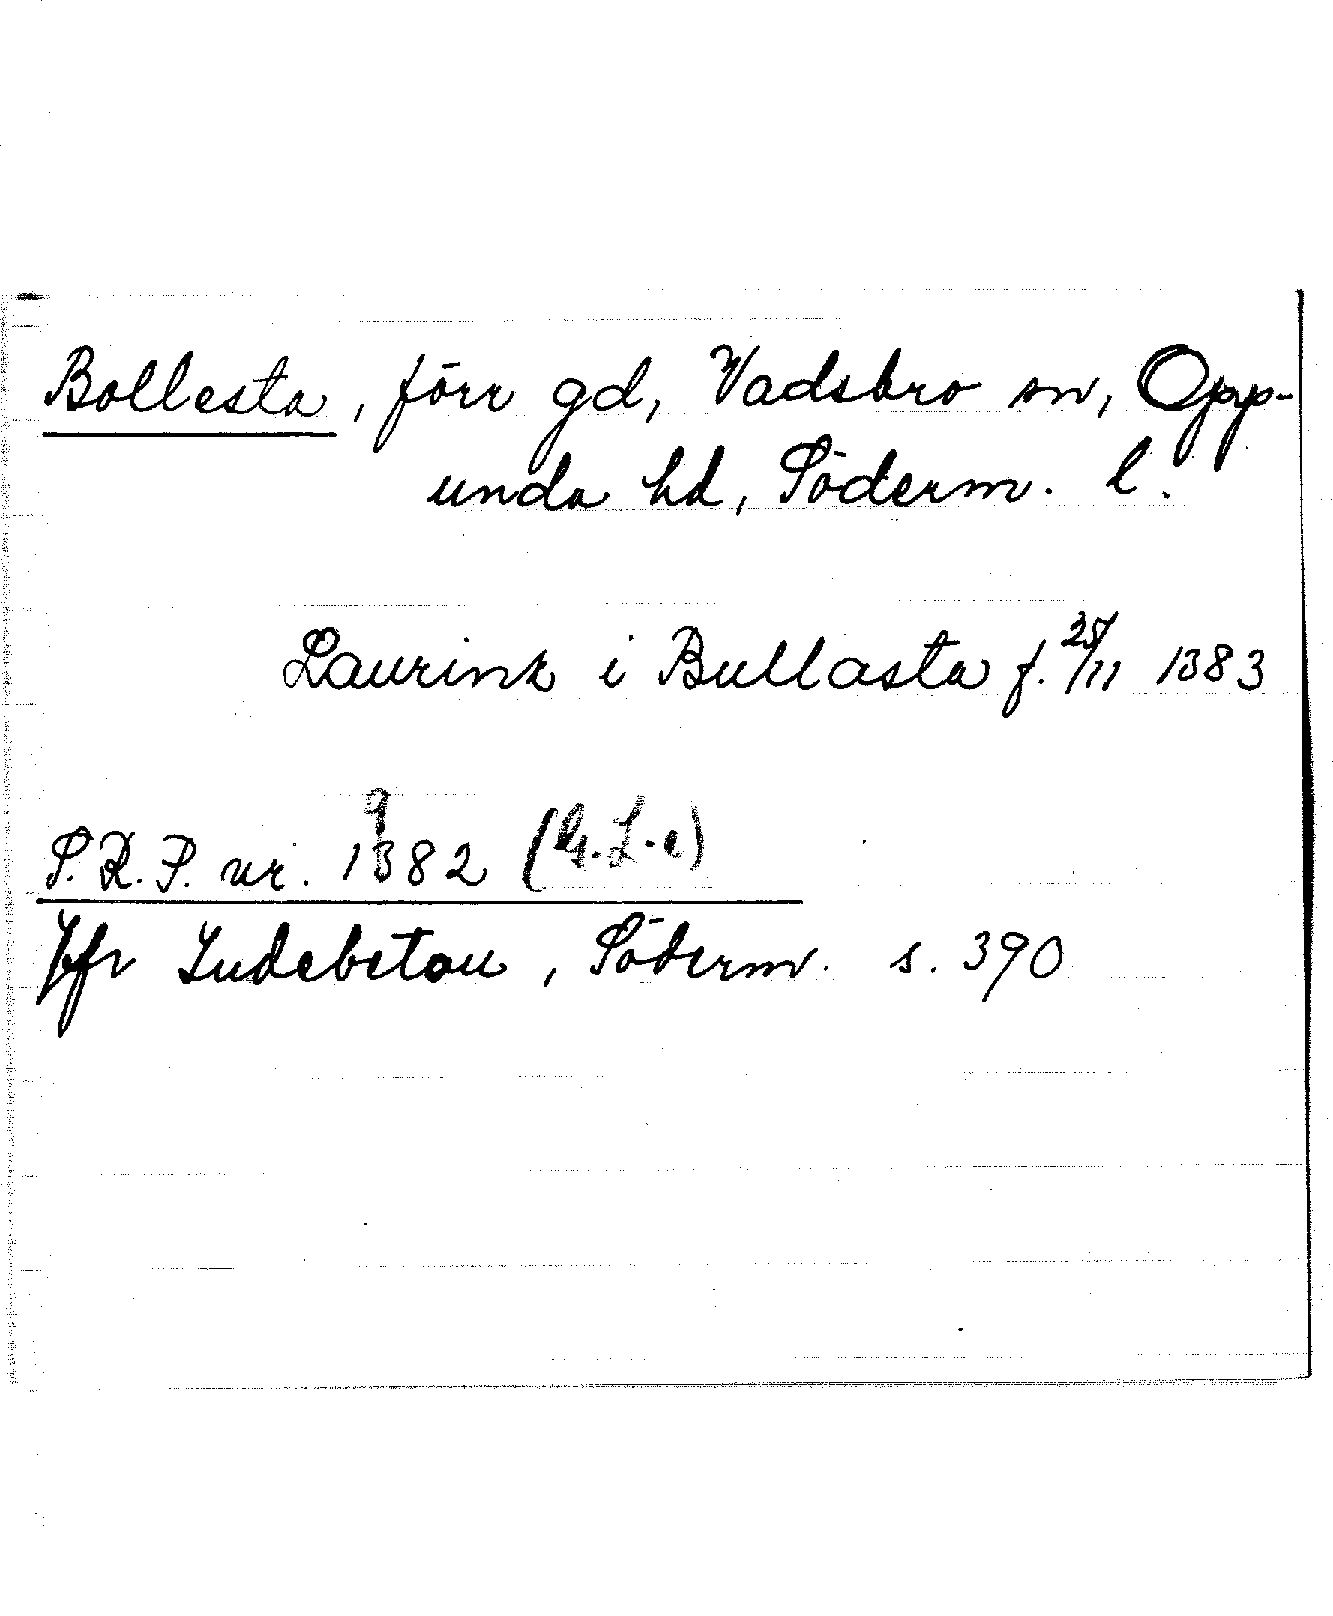 Bollesta, förr gd, Vadsbro sn, Opp-
unda hd, Söderm. l.
Laurinz i Bullasta f. 25/11 1383
9
S.R.P. nr. 1382 (
Jfr Indebetou, Söderm. s. 390